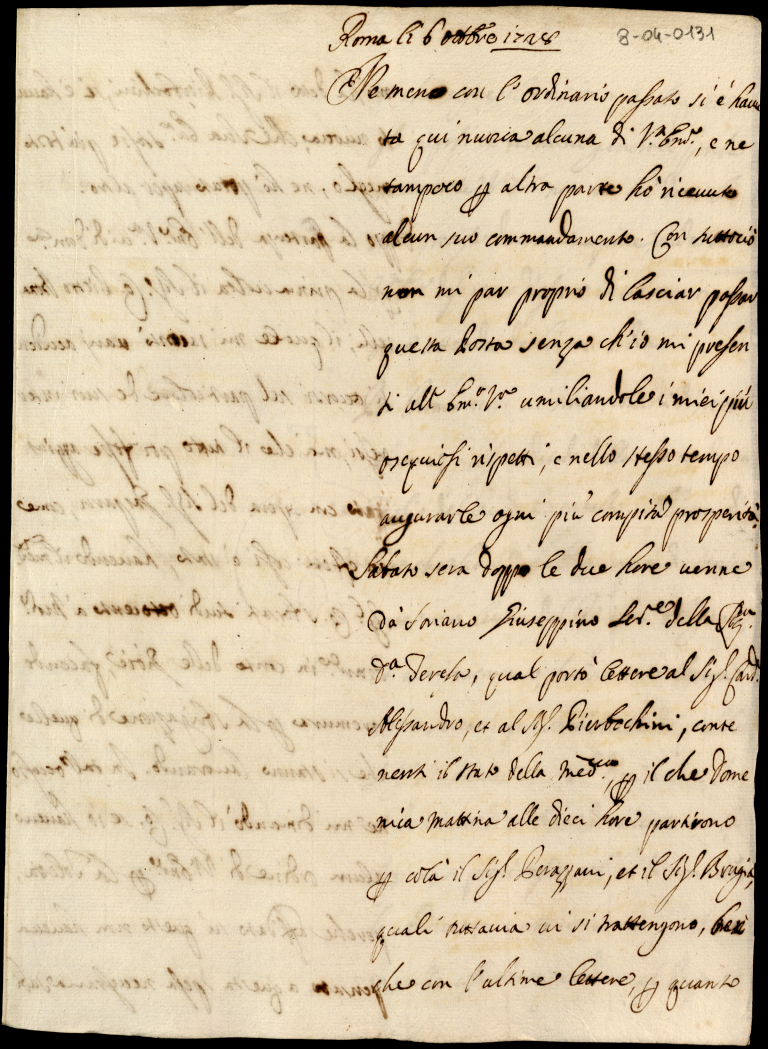 Roma li 6 ottbre 1728
8-04-0131
Ne meno con l'ordinario passato si è havu
ta qui nuova alcuna di V.ra Em.za, e ne
tampoco p altra parte hò ricevuto
alcun suo commandamento. Con tuttociò
non mi par proprio di lasciar passar
questa Posta senza ch'io mi presen
ti all' Em.za V.ra umiliandole i miei più
ossequiosi rispetti, e nello stesso tempo
augurarle ogni più compita prosperità.
Sabato sera doppo le due hore venne
da Soriano Giuseppino Ser.e della
D.a Teresa, qual portò lettere al Sig.r Card.
Alessandro, et al Sig.r Pierbechini, conte
nenti il stato della med.ma, p il che Dome
nica mattina alle dieci hore partirono
p colà il Sig.r Perazzani, et il Sig.r
quali tuttavia ivi si trattengono, ben
che con l'ultime lettere, p quanto